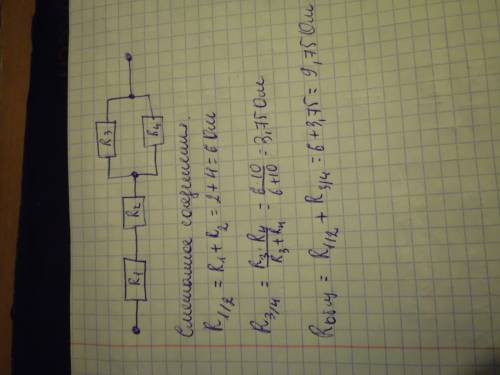 R1 R2 R3 R4
Смешанное соединение.
R1/2 = R1 + R2 = 2+4 = 6 Ом
R3/4 = R3 · R4 / R3 + R4 = 6 · 10 / 6 + 10 = 3,75 Ом
Rобщ. = R1/2 + R3/4 = 6 + 3,75 = 9,75 Ом